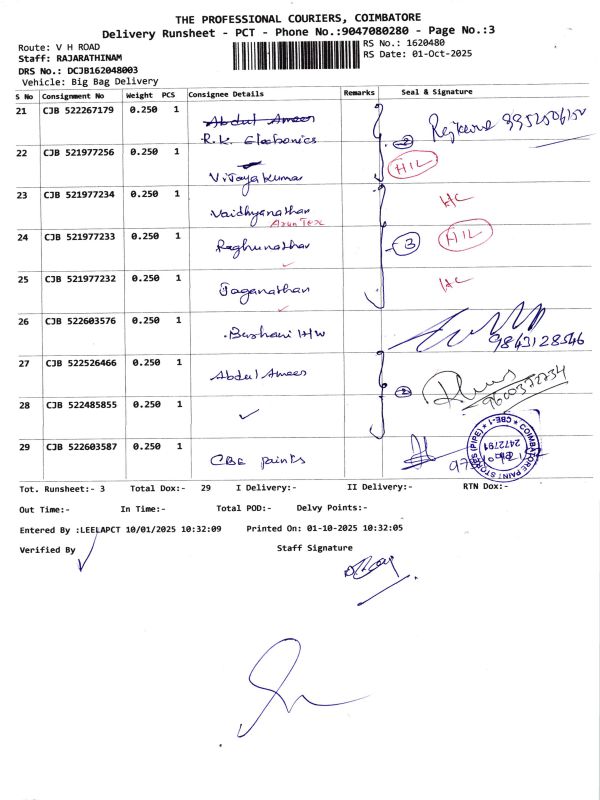 THE PROFESSIONAL COURIERS, COIMBATORE
Delivery Runsheet - PCT - Phone No.:9047080280 - Page No.:3
Route: V H ROAD
RS No.: 1620480
Staff: RAJARATHINAM
RS Date: 01-Oct-2025
DRS No.: DCJB162048003
Vehicle: Big Bag Delivery
S No Consignment No Weight PCS Consignee Details Remarks Seal & Signature
21 CJB 522267179 0.250 1 Abdul Amees
R.K. Electronics
2
22 CJB 521977256 0.250 1 Vijayakumar HIL
23 CJB 521977234 0.250 1 Vaidhyanathan HC
Arun Tex
24 CJB 521977233 0.250 1 Raghunathan 3 HIL
25 CJB 521977232 0.250 1 Jaganathan HC
26 CJB 522603576 0.250 1 Bashani H/W
9843128546
27 CJB 522526466 0.250 1 Abdul Amees 2
9600372734
28 CJB 522485855 0.250 1 ✓
29 CJB 522603587 0.250 1 CBE paints
COIMBATORE PAINT STORES (PIPE) ★ CBE-1 ★
2472791
Tot. Runsheet:- 3 Total Dox:- 29 I Delivery:- II Delivery:- RTN Dox:-
Out Time:- In Time:- Total POD:- Delvy Points:-
Entered By :LEELAPCT 10/01/2025 10:32:09 Printed On: 01-10-2025 10:32:05
Verified By Staff Signature